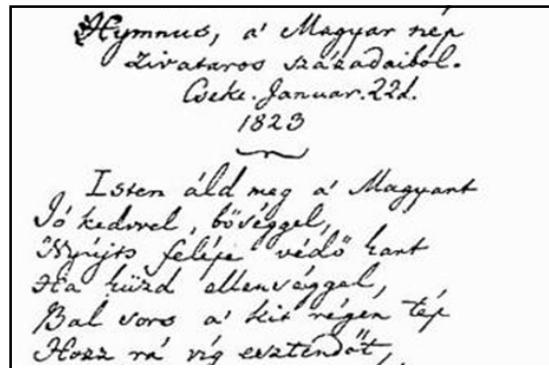 Hymnus, a' Magyar nép
zivataros századaiból.
Cseke. Januar. 22d.
1823
Isten áld meg a' Magyart
Jó kedvvel, bőséggel,
Nyújts feléje védő kart
Ha küzd ellenséggel,
Bal sors a' kit régen tép
Hozz rá víg esztendőt,